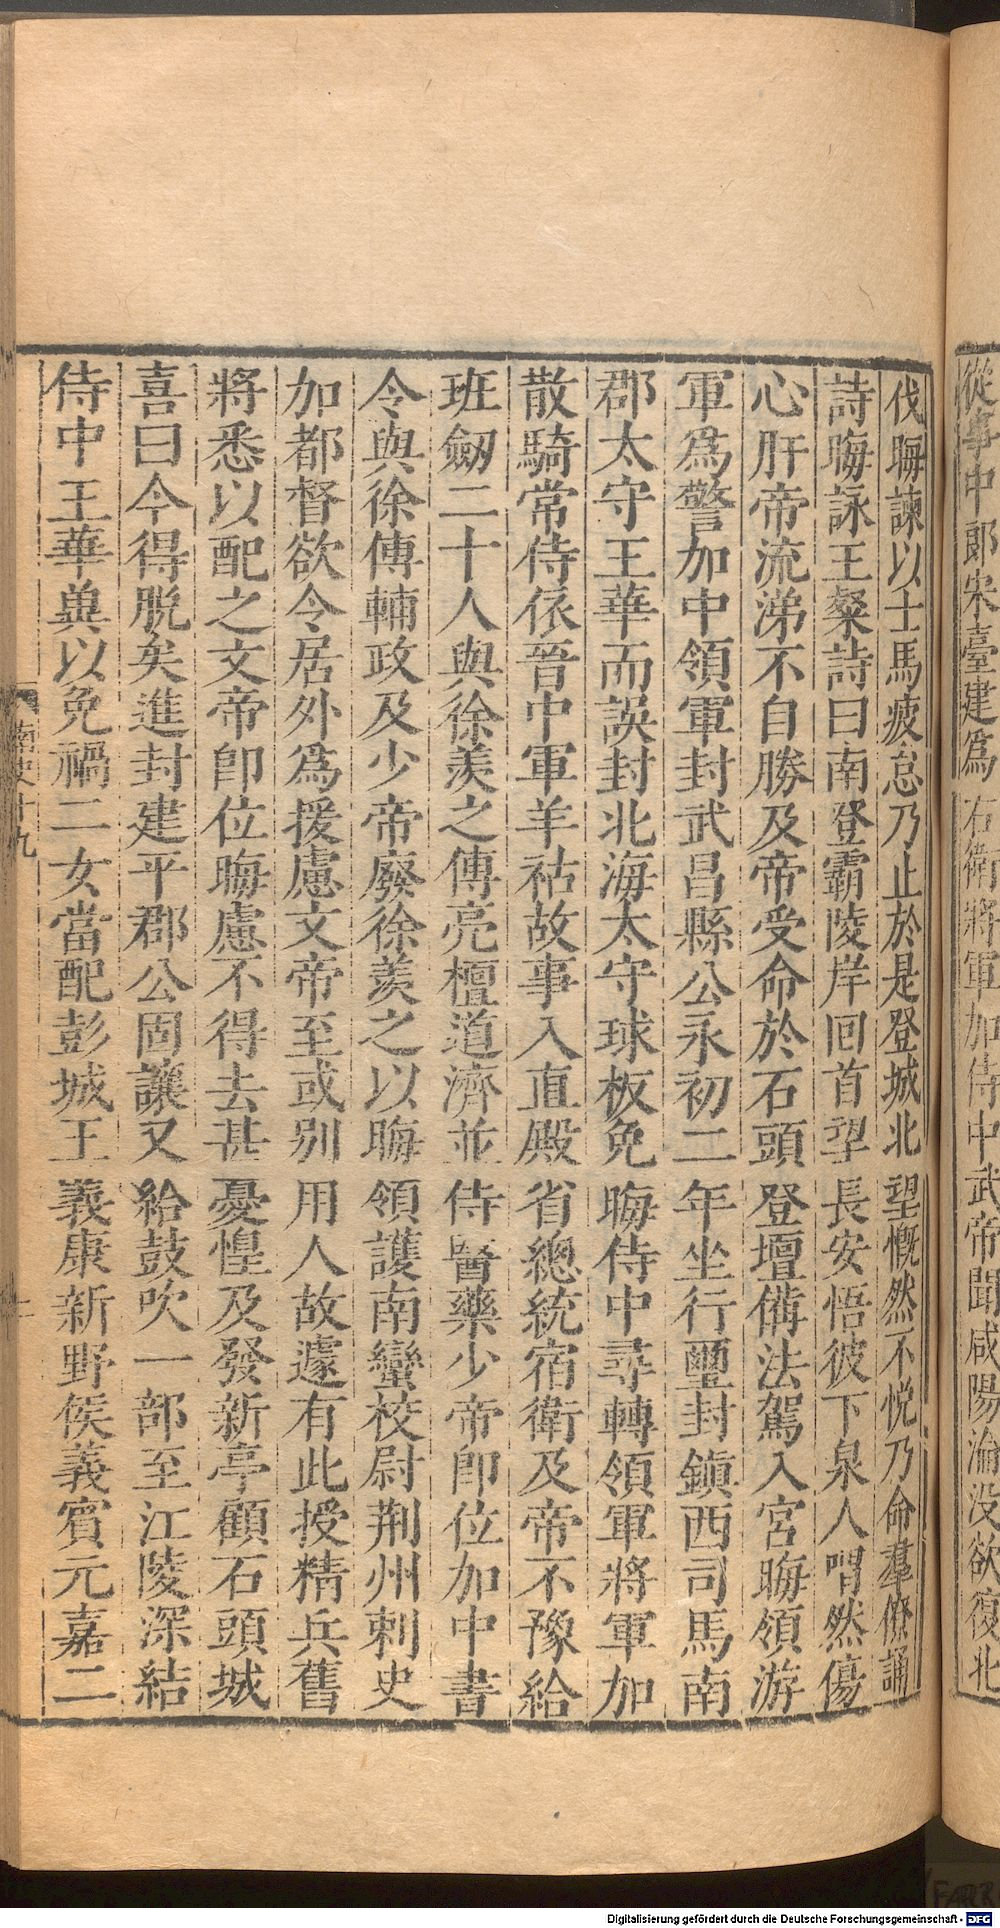 從事中郎宋臺建爲右衛將軍加侍中武帝聞咸陽淪没欲復北
伐晦諫以士馬疲怠乃止於是登城北望慨然不悅乃命羣僚誦
詩晦詠王粲詩曰南登霸陵岸囘首望長安悟彼下泉人喟然傷
心肝帝流涕不自勝及帝受命於石頭登壇備法駕入宮晦領游
軍爲警加中領軍封武昌縣公永初二年坐行璽封鎭西司馬南
郡太守王華而誤封北海太守球板免晦侍中尋轉領軍將軍加
散騎常侍依晉中軍羊祜故事入直殿省總統宿衛及帝不豫給
班劒二十人與徐羨之傅亮檀道濟並侍醫藥少帝卽位加中書
令與徐傅輔政及少帝廢徐羨之以晦領護南蠻校尉荆州刺史
加都督欲令居外爲援慮文帝至或别用人故遽有此授精兵舊
將悉以配之文帝卽位晦慮不得去甚憂惶及發新亭顧石頭城
喜曰今得脫矣進封建平郡公固讓又給鼓吹一部至江陵深結
侍中王華冀以免禍二女當配彭城王義康新野侯義賓元嘉二
南史十九
Digitalisierung gefördert durch die Deutsche Forschungsgemeinschaft - DFG